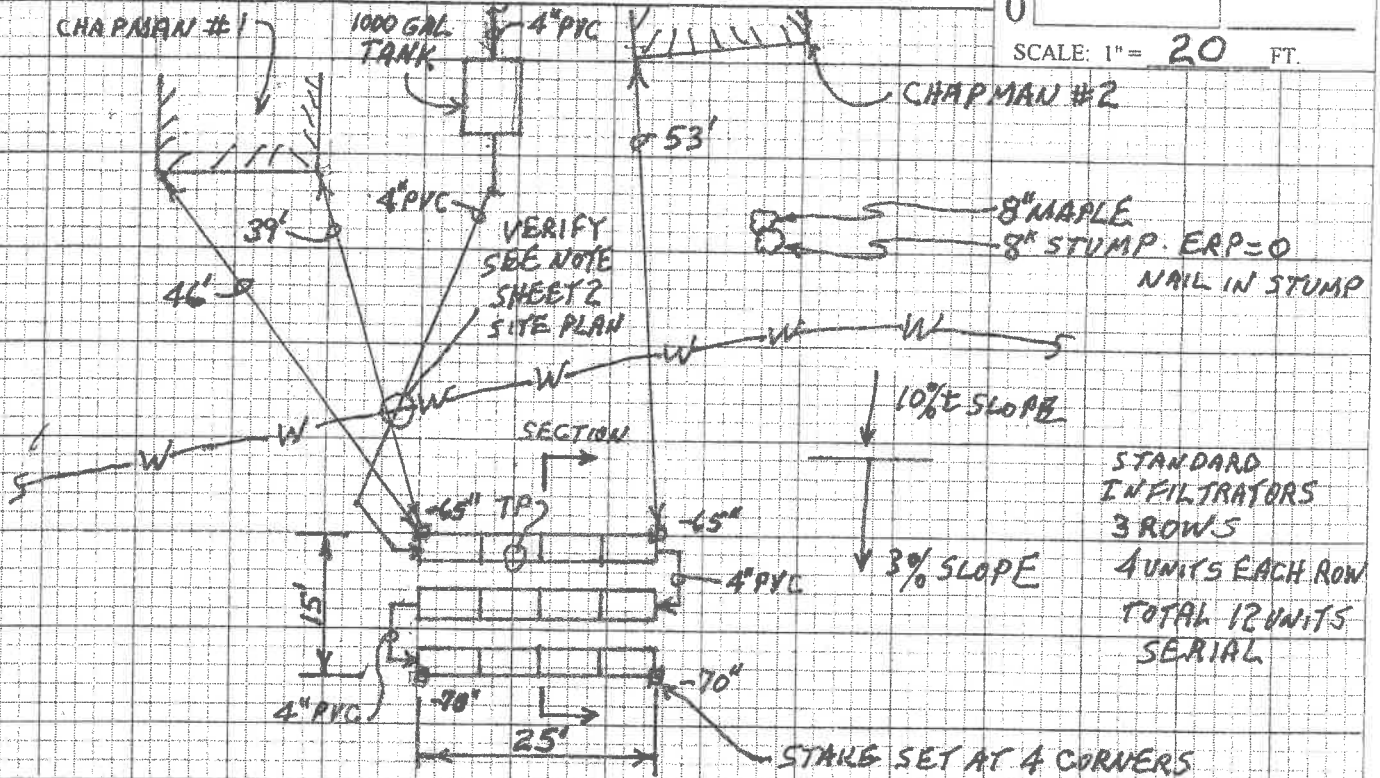 CHAPMAN #1
1000 GAL
TANK
4" PVC
SCALE: 1" = 20 FT.
CHAPMAN #2
53'
4" PVC
39'
46'
VERIFY
SEE NOTE
SHEET 2
SITE PLAN
8" MAPLE
8" STUMP. ERP=0
NAIL IN STUMP
W W W W W W W
10%± SLOPE
SECTION
STANDARD
INFILTRATORS
3 ROWS
4 UNITS EACH ROW
TOTAL 12 UNITS
SERIAL
-65" TP -65"
3% SLOPE
4" PVC
15'
-70" -70"
4" PVC
25'
STAKE SET AT 4 CORNERS